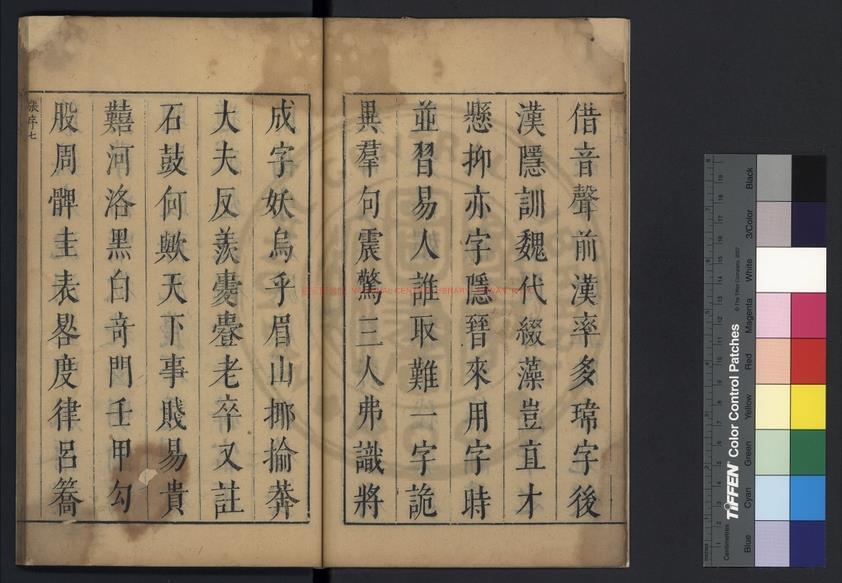 借音聲前漢率多瑋字後
漢隱訓魏代綴藻豈直才
懸抑亦字隱晉來用字時
並習易人誰取難一字詭
異羣句震驚三人弗識將
成字妖烏乎眉山揶揄莽
大夫反羨老卒又註
石鼓何歟天下事賤易貴
囏河洛黑白奇門壬甲勾
股周髀圭表晷度律呂籥
集序七
TIFFEN Color Control Patches
© The Tiffen Company, 2007
Centimetres
Blue Cyan Green Yellow Red Magenta White 3/Color Black